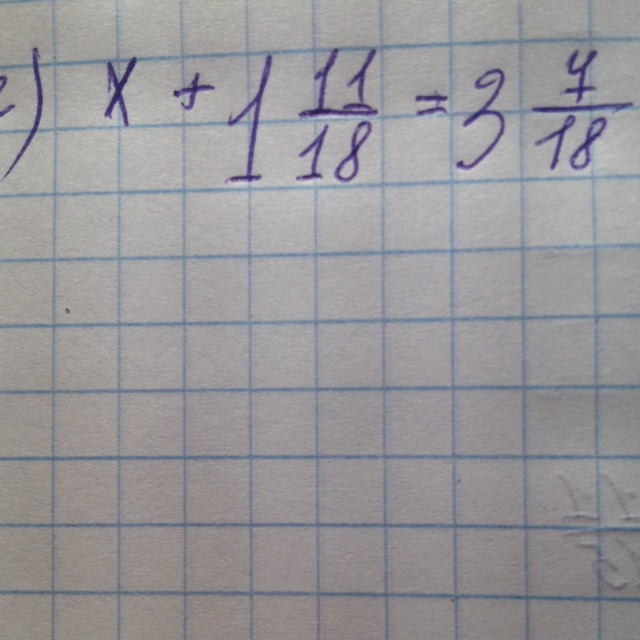 e) x + 1 11/18 = 3 7/18